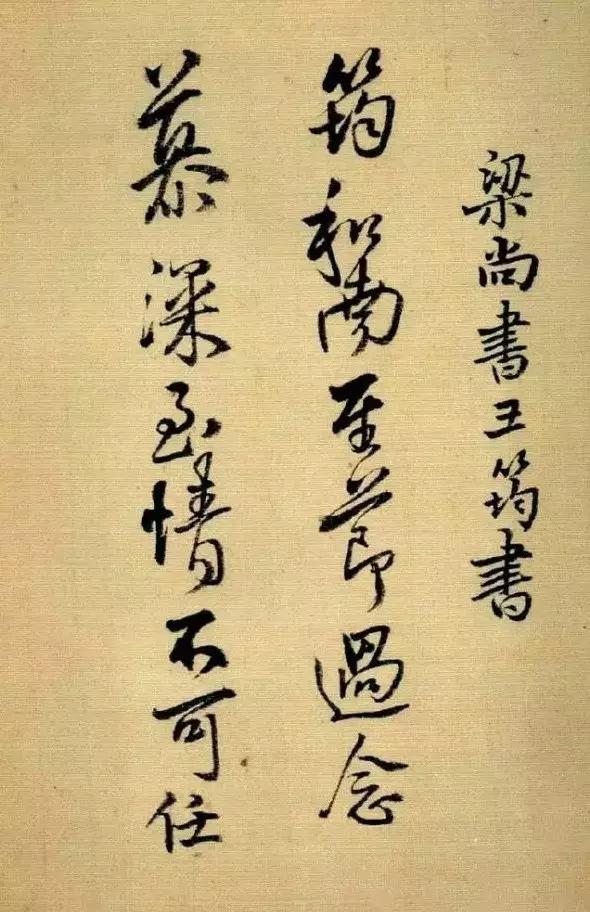 梁尚書王筠書
筠和南至節過念
慕深至情不可任